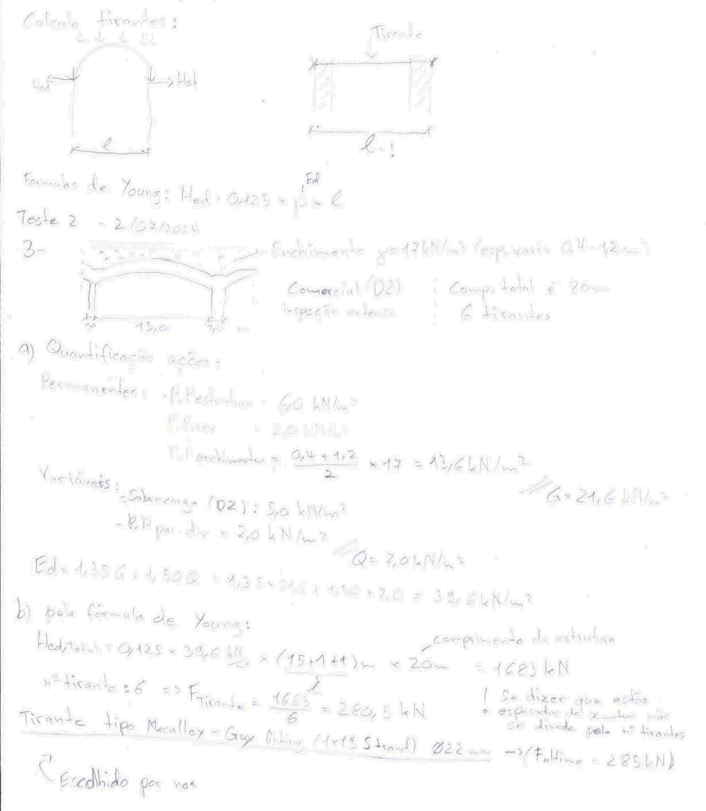 Calcula tirantes:
Tirante
Hed
Hed
l
l - !
Formulas de Young: Hed = 0,125 × p × l
Ed
Teste 2 - 2/02/2024
3-
Enchimento γ=17kN/m³ (esp. varia 0,4-1,2m)
Comercial (D2)
Comp. total é 20m
inspeção extensa
6 tirantes
15,0
m
a) Quantificação ações:
Permanentes:
= 6,0 kN/m²
= 2,0 kN/m²
P.P.enchimento = (0,4 + 1,2)/2 × 17 = 13,6 kN/m²
G = 21,6 kN/m²
Variáveis:
- Sobrecarga (D2): 5,0 kN/m²
- P.P par. div = 2,0 kN/m²
Q = 7,0 kN/m²
Ed = 1,35G + 1,50Q = 1,35 × 21,6 + 1,50 × 7,0 = 39,6 kN/m²
b) pela fórmula de Young:
comprimento da estrutura
Hed,Total = 0,125 × 39,6 kN/m² × (15+1+1)m × 20m = 1683 kN
l
nº tirante: 6 => F Tirante = 1683/6 = 280,5 kN
! Se dizer que estão
espaçados de x metros não
se divide pelo nº tirantes
Tirante tipo Macalloy - Guy (1×19 Strand) Ø22 mm -> (Fultima = 285 kN)
Escolhido por nos